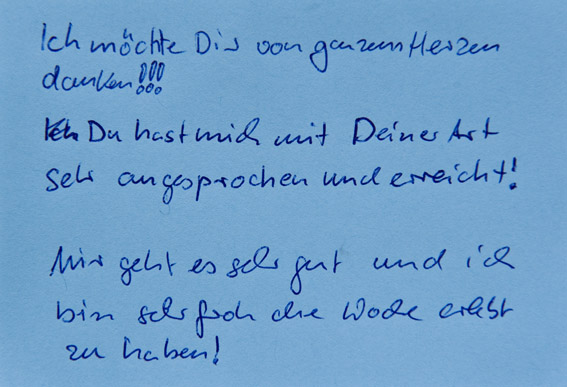 Ich möchte Dir von ganzem Herzen
danken!!!
Du hast mich mit Deiner Art
sehr angesprochen und erreicht!
Mir geht es sehr gut und ich
bin sehr froh die Woche erlebt
zu haben!